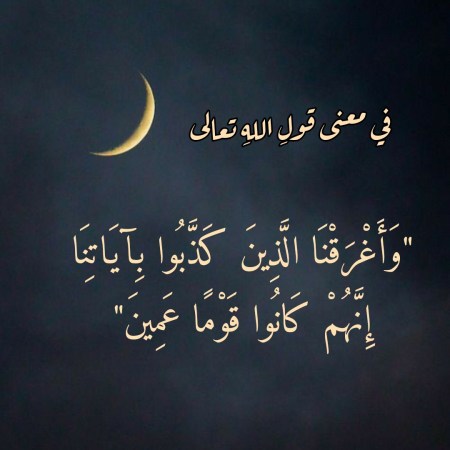 في معنى قولِ اللهِ تعالى
"وَأَغْرَقْنَا الَّذِينَ كَذَّبُوا بِآيَاتِنَا
إِنَّهُمْ كَانُوا قَوْمًا عَمِينَ"